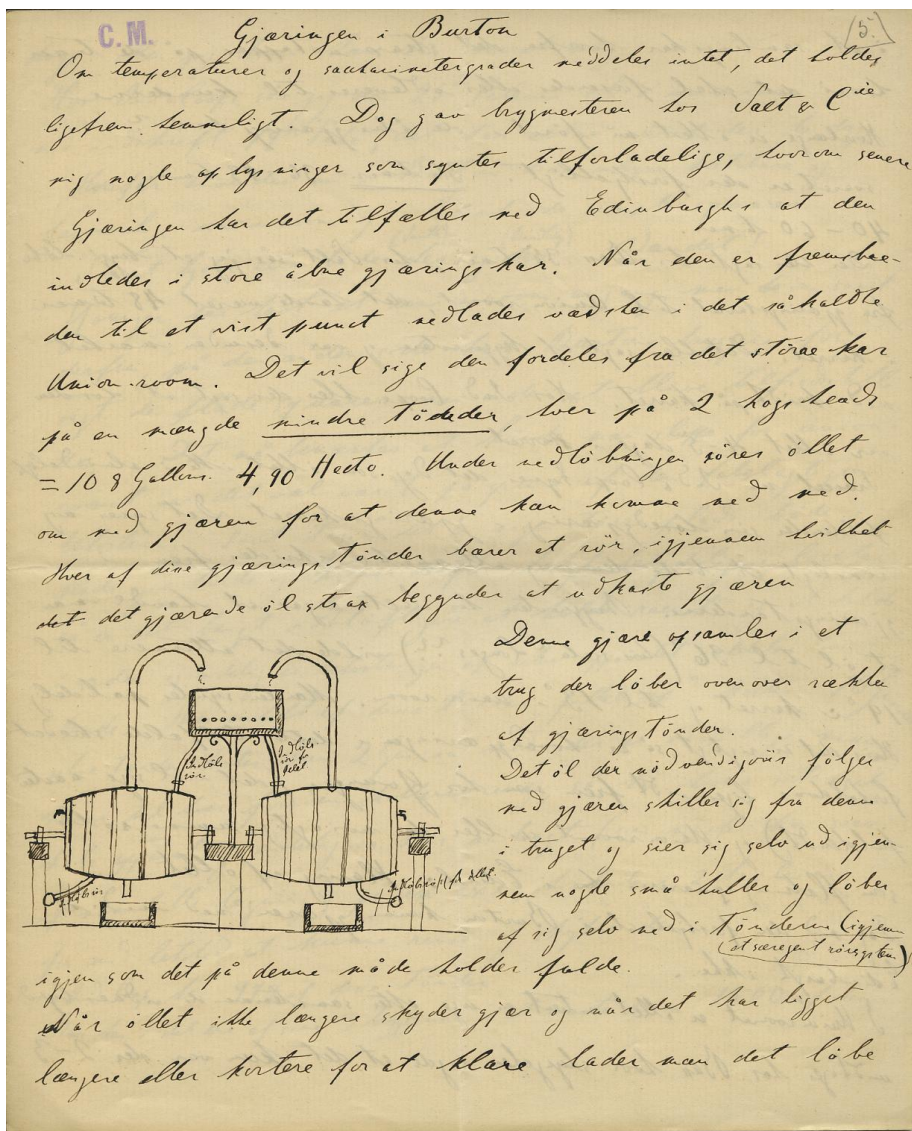 C. M.
5.
Gjæringen i Burton
Om temperaturer og saccharimetergrader meddeles intet, det holdes
ligefrem hemmeligt. Dog gav brygmesteren hos Salt & Cie
mig nogle oplysninger som syntes tilforladelige, hvorom senere
Gjæringen har det tilfælles med Edinburghs at den
indledes i store åbne gjæringskar. Når den er fremskre-
den til et vist punct nedlades vædsken i det såkaldte
Union-room. Det vil sige den fordeles fra det störae kar
på en mængde mindre Tödeder, hver på 2 hogsheads
= 108 Gallons. 4,90 Hecto. Under nedlöbningen röres öllet
om med gjæren for at denne kan komme med ned.
Hver af disse gjæringstönder bærer et rör, igjennem hvilket
det det gjærende öl strax begynder at udkaste gjæren
Denne gjære opsamles i et
trug der löber ovenover rækken
af gjæringstönder.
Det öl der nödvendigviis fölger
med gjæren skiller sig fra denne
i truget og sier sig selv ud igjen-
nem nogle små huller og löber
af sig selv ned i Tönderne (igjennem
et særegent rörsystem)
Indlöbs
rör
Indlöbs
rör for
öllet
igjen som det på denne måde holder fulde.
Når öllet ikke længere skyder gjær og når det har ligget
længere eller kortere for at klare lader man det löbe